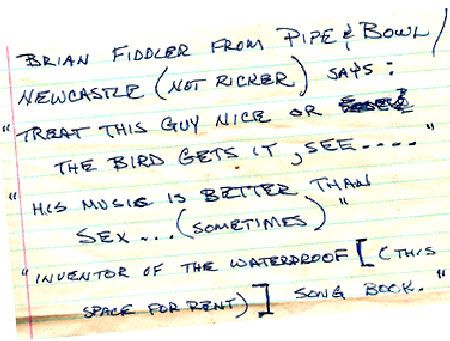 BRIAN FIDDLER FROM PIPE & BOWL/
NEWCASTLE (NOT RICKER) SAYS:
"TREAT THIS GUY NICE OR
THE BIRD GETS IT, SEE----"
"HIS MUSIC IS BETTER THAN
SEX...(SOMETIMES)"
"INVENTOR OF THE WATERPROOF [(THIS
SPACE FOR RENT)] SONG BOOK."